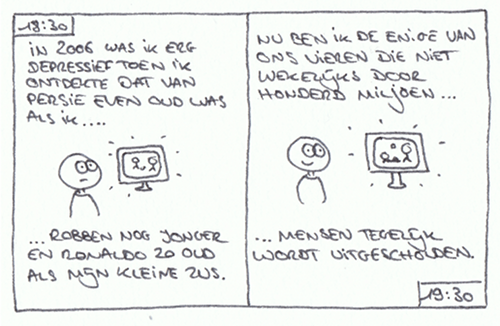 18:30
IN 2006 WAS IK ERG
DEPRESSIEF TOEN IK
ONTDEKTE DAT VAN
PERSIE EVEN OUD WAS
ALS IK....
...ROBBEN NOG JONGER
EN RONALDO ZO OUD
ALS MIJN KLEINE ZUS.
NU BEN IK DE ENIGE VAN
ONS VIEREN DIE NIET
WEKELIJKS DOOR
HONDERD MILJOEN...
...MENSEN TEGELIJK
WORDT UITGESCHOLDEN.
19:30